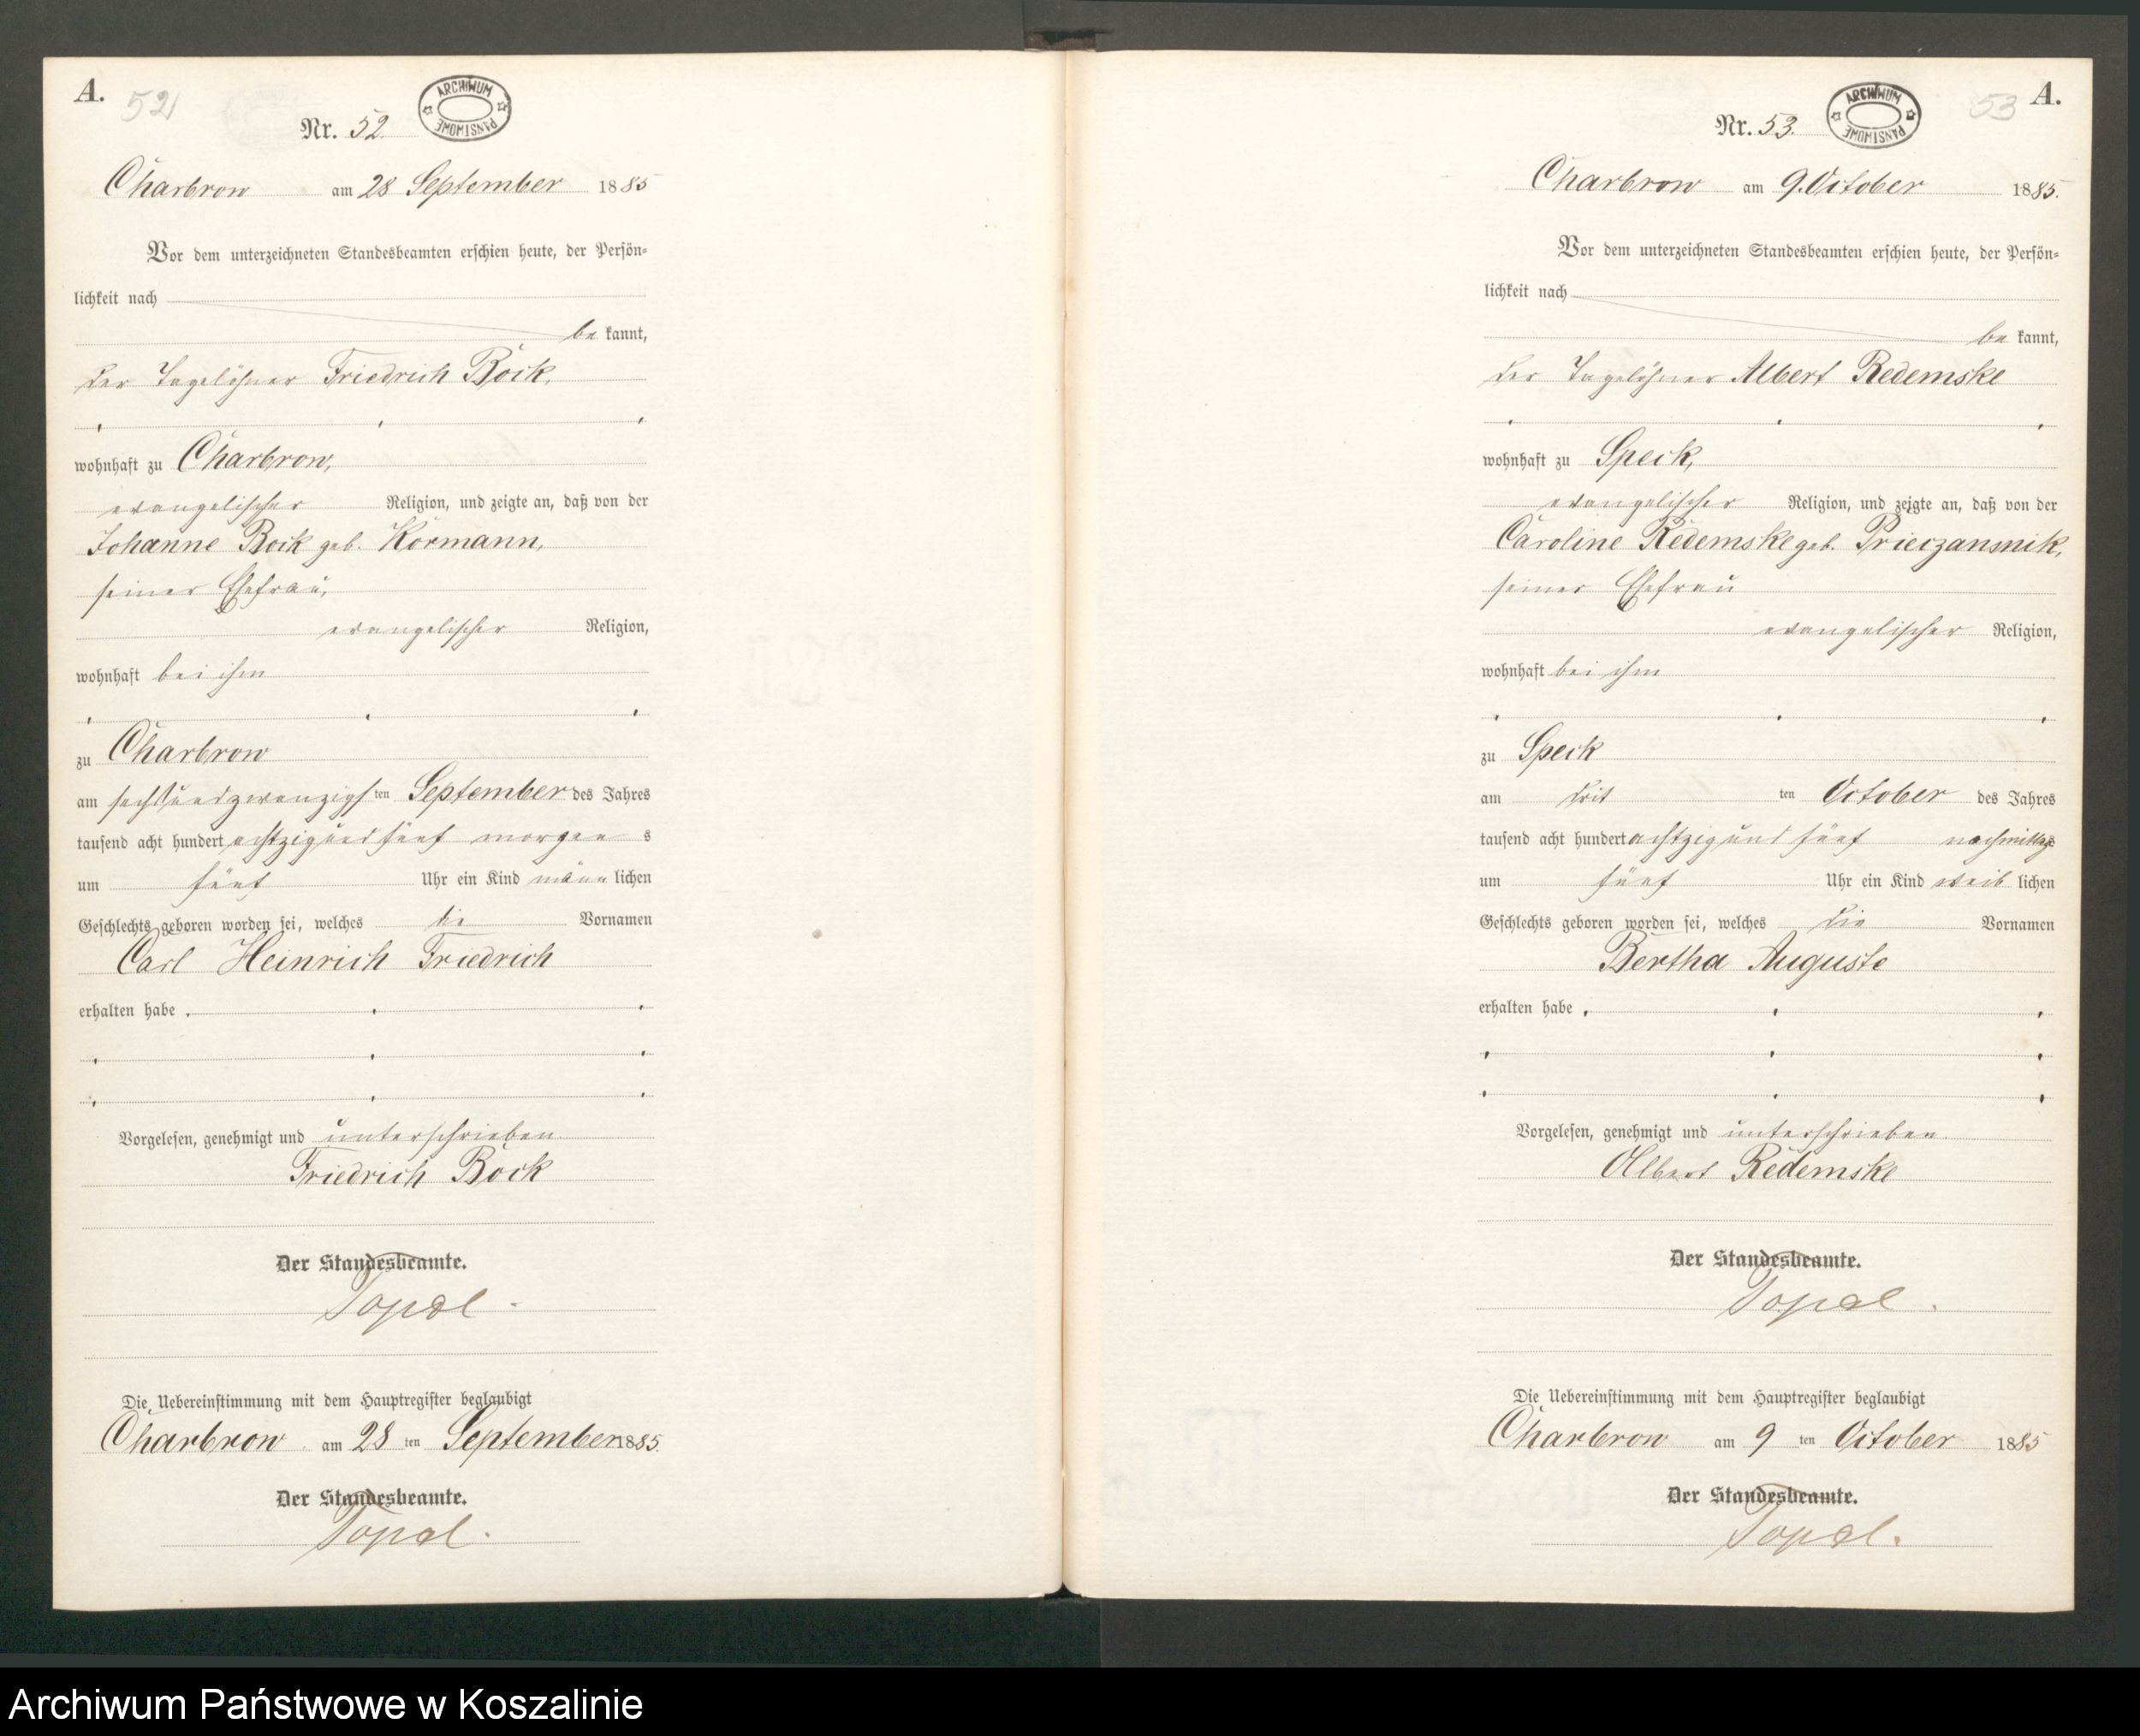 A.
52
Nr. 52.
ARCHIWUM PAŃSTWOWE
Charbrow am 28 September 1885
Vor dem unterzeichneten Standesbeamten erschien heute, der Persön-
lichkeit nach
be kannt,
der Tagelöhner Friedrich Bock,
wohnhaft zu Charbrow,
evangelischer Religion, und zeigte an, daß von der
Johanne Bock geb. Körmann,
seiner Ehefrau,
evangelischer Religion,
wohnhaft bei ihm
zu Charbrow
am sechsundzwanzigsten September des Jahres
tausend acht hundert achtzig und fünf morgens
um fünf Uhr ein Kind männlichen
Geschlechts geboren worden sei, welches die Vornamen
Carl Heinrich Friedrich
erhalten habe.
Vorgelesen, genehmigt und unterschrieben
Friedrich Bock
Der Standesbeamte.
Topel.
Die Uebereinstimmung mit dem Hauptregister beglaubigt
Charbrow am 28 ten September 1885.
Der Standesbeamte.
Topel.
A.
53
Nr. 53.
ARCHIWUM PAŃSTWOWE
Charbrow am 9. October 1885.
Vor dem unterzeichneten Standesbeamten erschien heute, der Persön-
lichkeit nach
be kannt,
der Tagelöhner Albert Redemske
wohnhaft zu Speck,
evangelischer Religion, und zeigte an, daß von der
Caroline Redemske geb. Prieczansnik,
seiner Ehefrau
evangelischer Religion,
wohnhaft bei ihm
zu Speck
am drit ten October des Jahres
tausend acht hundert achtzig und fünf nachmittags
um fünf Uhr ein Kind weiblichen
Geschlechts geboren worden sei, welches die Vornamen
Bertha Auguste
erhalten habe.
Vorgelesen, genehmigt und unterschrieben.
Albert Redemske
Der Standesbeamte.
Topel.
Die Uebereinstimmung mit dem Hauptregister beglaubigt
Charbrow am 9 ten October 1885
Der Standesbeamte.
Topel.
Archiwum Państwowe w Koszalinie